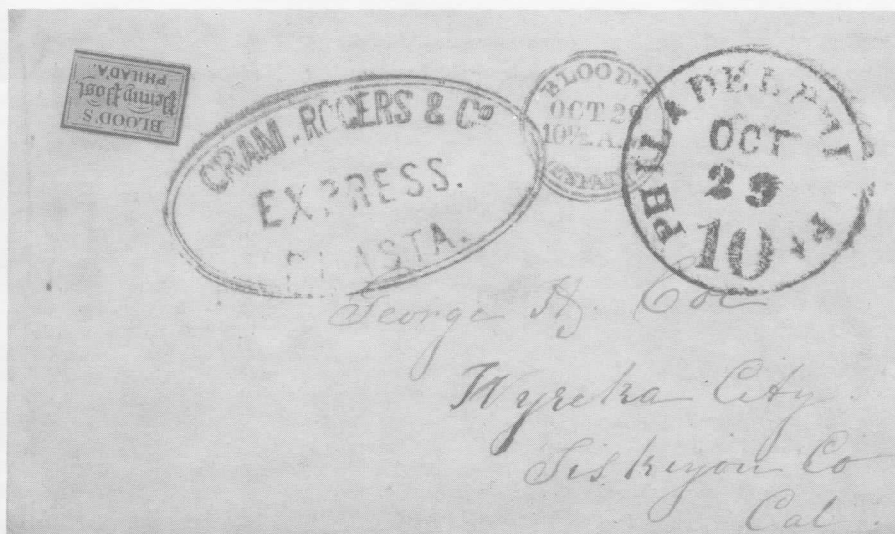 BLOOD'S
Penny Post
PHILAD'A.
CRAM, ROGERS & Co
EXPRESS.
BLOOD'S
OCT 29
10½ A.M.
PHILADELPHIA Pa
OCT
29
10
George H. Coe
Wyreka City
Siskiyou Co
Cal.